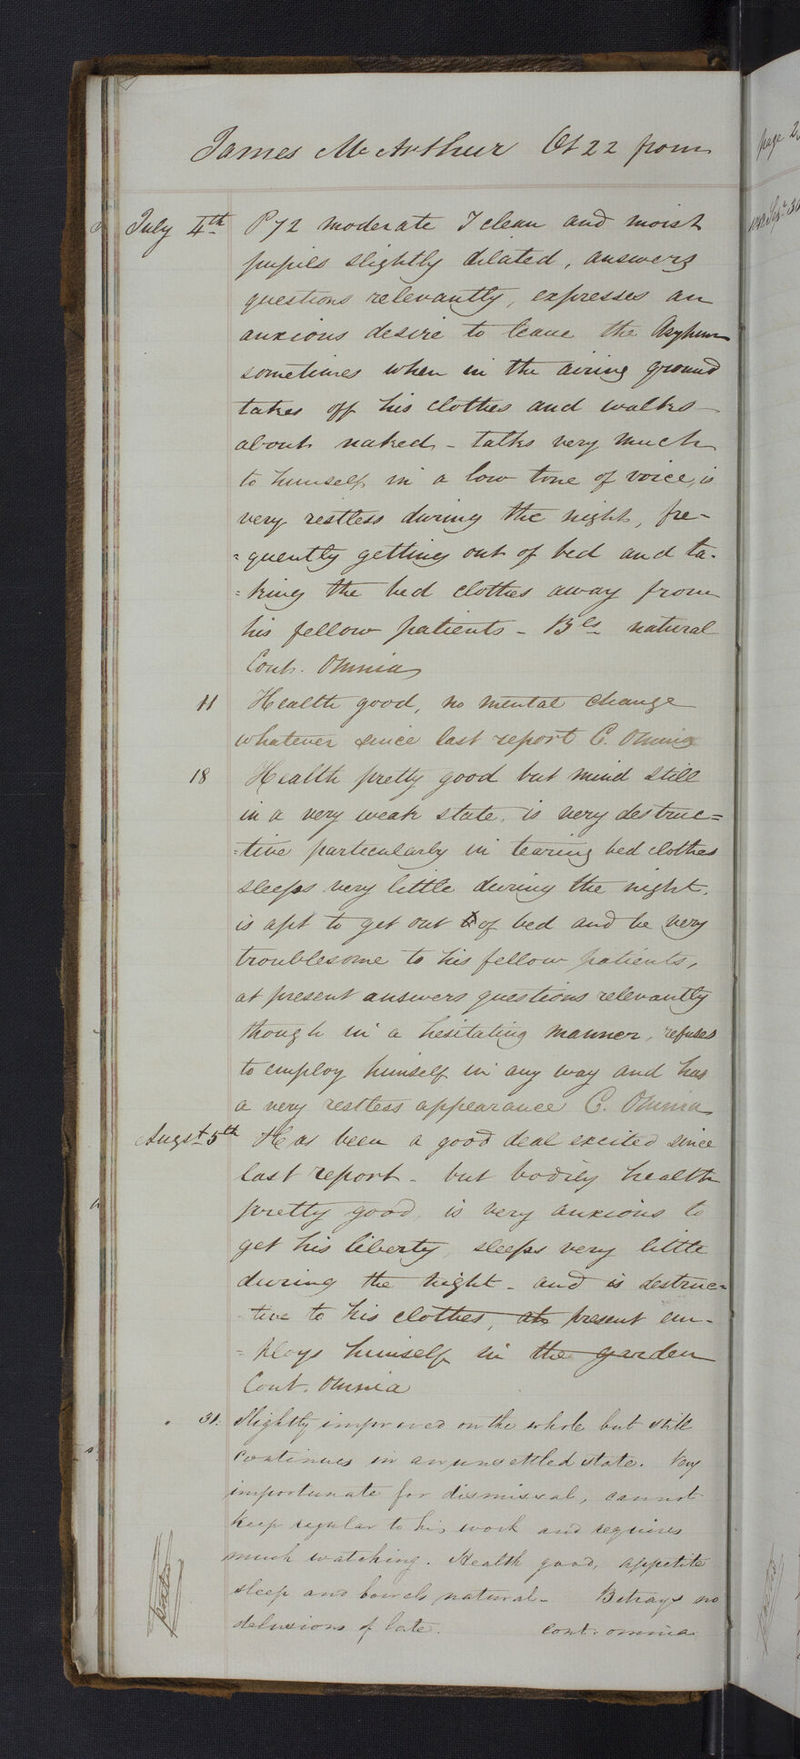 James McArthur Æt 22 from
July 4th P 72 moderate T clean and moist
pupils slightly dilated, answers
questions relevantly, expresses an
anxious desire to leave the Asylum
sometimes when in the airing ground
takes off his clothes and walks
about naked - talks very much
to himself in a low tone of voice, is
very restless during the night, fre-
=quently getting out of bed and ta-
=king the bed clothes away from
his fellow patients - Bls natural
Cont. Omnia
11 Health good, no mental change
whatever since last report C. Omnia
18 Health pretty good but mind still
in a very weak state, is very destruc=
=tive particularly in tearing bed clothes
sleeps very little during the night,
is apt to get out of bed and be very
troublesome to his fellow patients,
at present answers questions relevantly
though in a hesitating manner, refuses
to employ himself in any way and has
a very restless appearance C. Omnia
Augst 5th Has been a good deal excited since
last report - but bodily health
pretty good, is very anxious to
get his liberty, sleeps very little
during the night - and is destruc=
-tive to his clothes, at present em-
=ploys himself in the garden
Cont. Omnia
31. Slightly improved on the whole but still
continues in an unsettled state. Very
importunate for dismissal, cannot
keep regular to his work and requires
much watching. Health good, appetite
sleep and bowels natural - Betrays no
delusions of late. Cont. omnia.
page